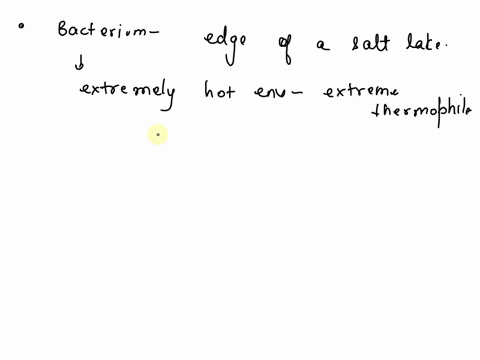 • Bacterium- edge of a salt lake.
↓
extremely hot env- extreme
thermophile